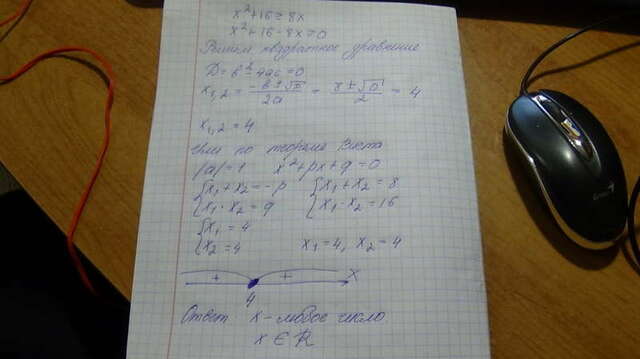 x²+16≥8x
x²+16-8x≥0
Решим квадратное уравнение
D=b²-4ac=0
x₁,₂ = (-b±√D)/2a = (8±√0)/2 = 4
x₁,₂=4
или по теореме Виета
|a|=1 x²+px+q=0
{x₁+x₂=-p {x₁+x₂=8
{x₁·x₂=q {x₁·x₂=16
{x₁=4
{x₂=4 x₁=4, x₂=4
+ + x
4
Ответ x-любое число
x∈ℝ
Genius